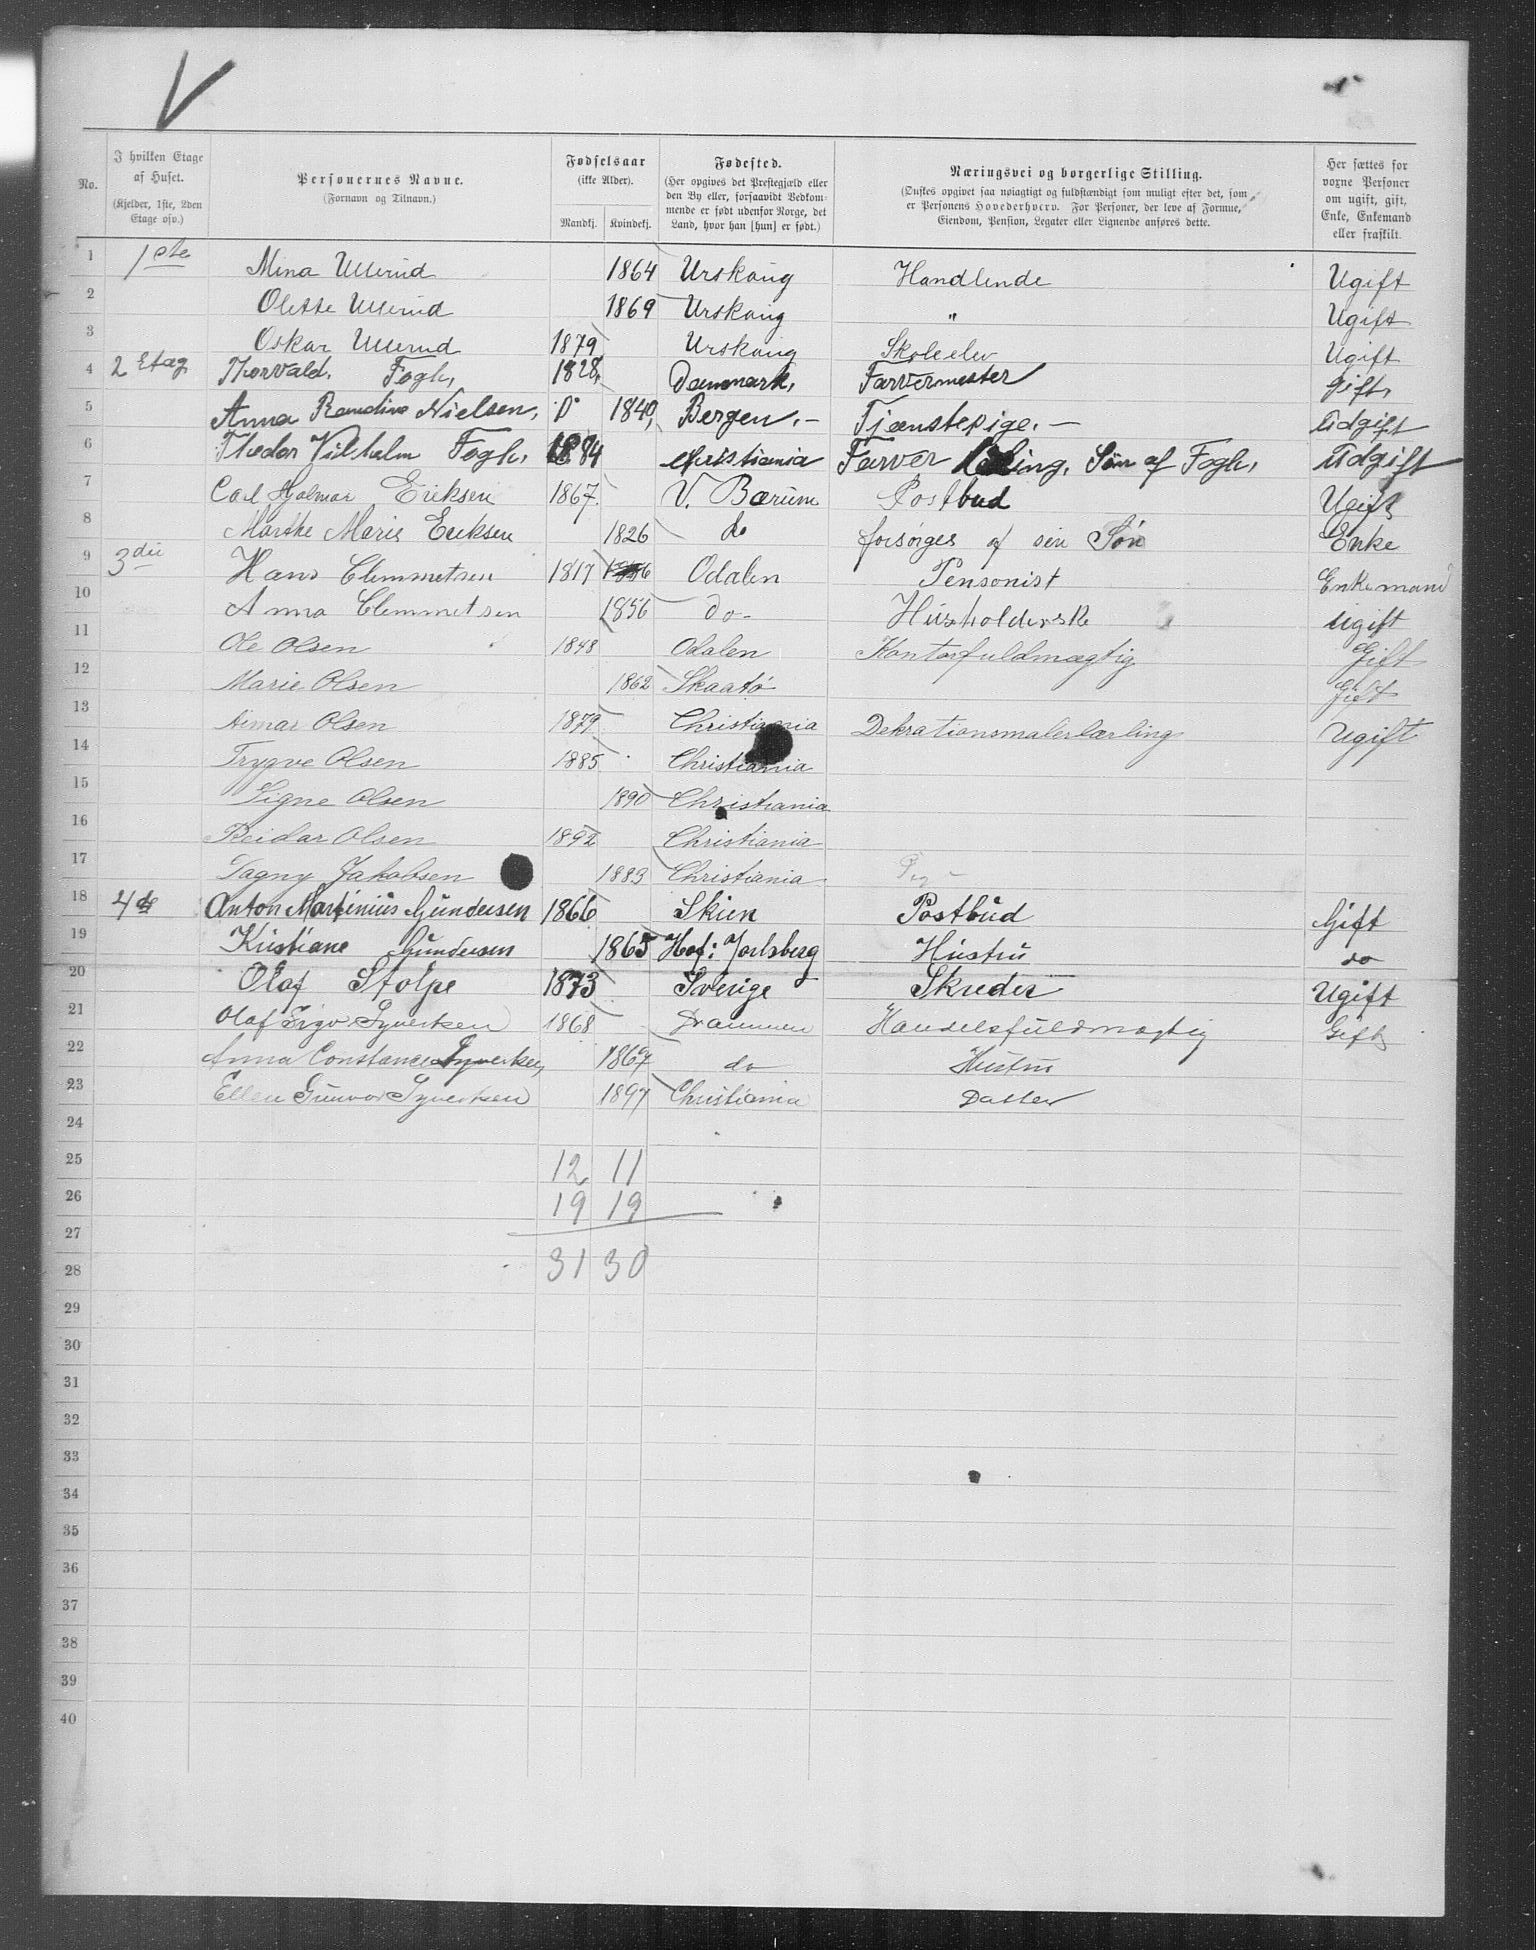 No. I hvilken Etage af Huset. (Kjelder, 1ste, 2den Etage osv.) Personernes Navne. (Fornavn og Tilnavn.) Fødselsaar (ikke Alder). Mandkj. Kvindekj. Fødested. (Her opgives det Prestegjæld eller den By eller, forsaavidt Vedkommende er født udenfor Norge, det Land, hvor han [hun] er født.) Næringsvei og borgerlige Stilling. (Ønskes opgivet saa nøiagtigt og fuldstændigt som muligt efter det, som er Personens Hovederhverv. For Personer, der leve af Formue, Eiendom, Pension, Legater eller Lignende anføres dette. Her sættes for voxne Personer om ugift, gift, Enke, Enkemand eller fraskilt.
1 1ste Mina Ullerud 1864 Urskoug Handlende Ugift
2 Olette Ullerud 1869 Urskoug " Ugift
3 Oskar Ullerud 1879 Urskoug Skoleelev Ugift
4 2 Etag Thorvald. Fogh, 1828, Danmark, Farvermester Gift,
5 Anna Randine Nielsen, 1840, Bergen. – Tjenstepige. – Udgift
6 Theodor Vilhelm Fogh, 1884 Christiania Farver Søn af Fogh, Udgift
7 Carl Hjalmar Eriksen 1867. V. Bærum Postbud Ugift
8 Marthe Marie Eriksen 1826 do forsørges af sin Søn Enke
9 3die Hans Clemmetsen 1817 Odalen Pensonist Enkemand
10 Anna Clemmetsen 1856 do- Husholderske Ugift
11 Ole Olsen 1848 Odalen Kontorfuldmægtig Gift
12 Marie Olsen 1862 Skaatø Gift
13 Olsen 1879 Christiania Dekrationsmalerlærling Ugift
14 Trygve Olsen 1885 Christiania
15 Signe Olsen 1890 Christiania
16 Reidar Olsen 1892 Christiania
17 Dagny Jakobsen 1883 Christiania
18 4de Anton Martinius Gundersen 1866 Skien Postbud Gift
19 Kristiane Gundersen 1865 Hof: Jarlsberg Hustru do
20 Olaf Stolpe 1873 Sverige Skreder Ugift
21 Olaf Syvertsen 1868 Drammen Handelsfuldmægtig Gift
22 Anna Constance Syvertsen 1867 do Hustru
23 Ellen Gunvor Syvertsen 1897 Christiania Datter
24
25 12 11
26 19 19
27
28 31 30
29
30
31
32
33
34
35
36
37
38
39
40